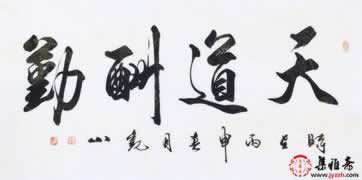 天道酬勤
時在丙申春月
集雅斋
www.zzzxh.cn